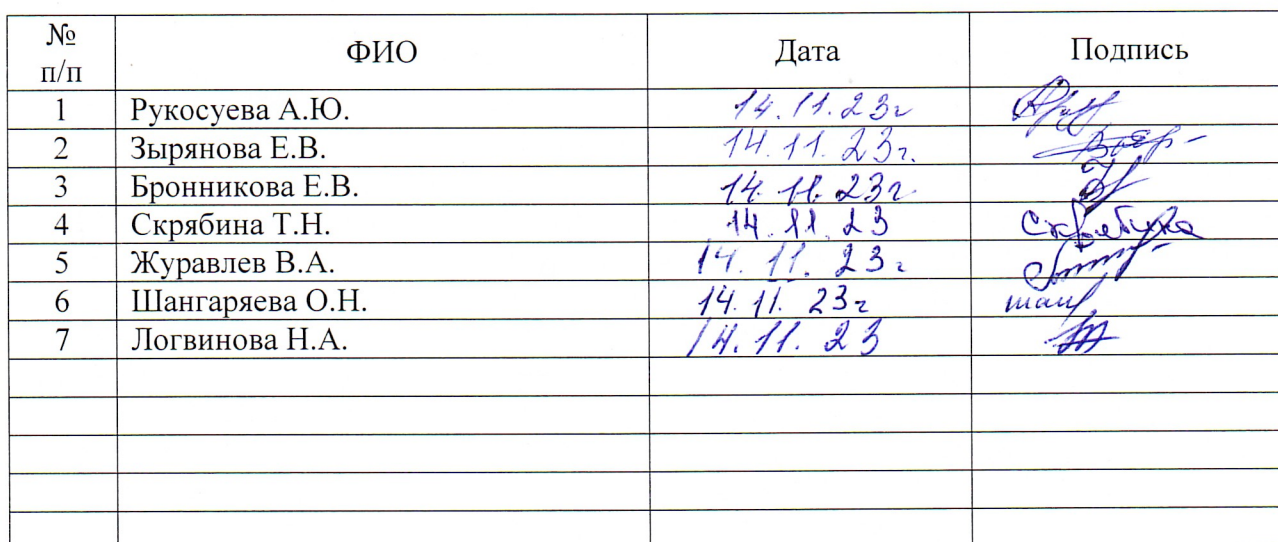 № п/п ФИО Дата Подпись
1 Рукосуева А.Ю. 14.11.23г
2 Зырянова Е.В. 14.11.23г.
3 Бронникова Е.В. 14.11.23г.
4 Скрябина Т.Н. 14.11.23 Скрябина
5 Журавлев В.А. 14.11.23г
6 Шангаряева О.Н. 14.11.23г
7 Логвинова Н.А. 14.11.23